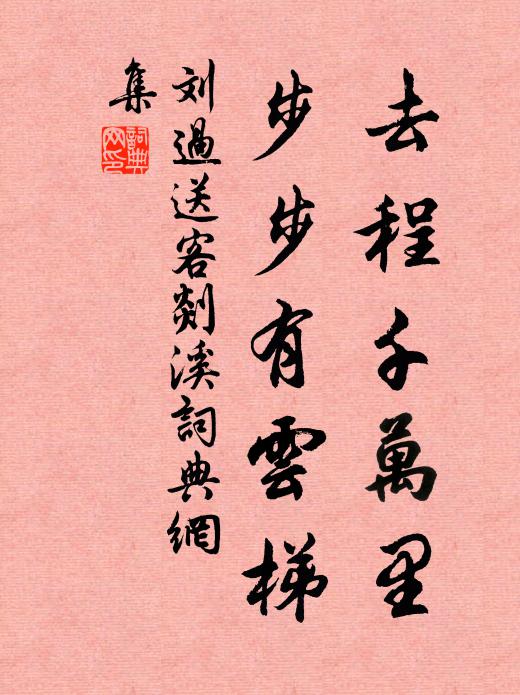 去程千萬里
步步有雲梯
刘過送客剡溪詞典網
集
詞典
网印